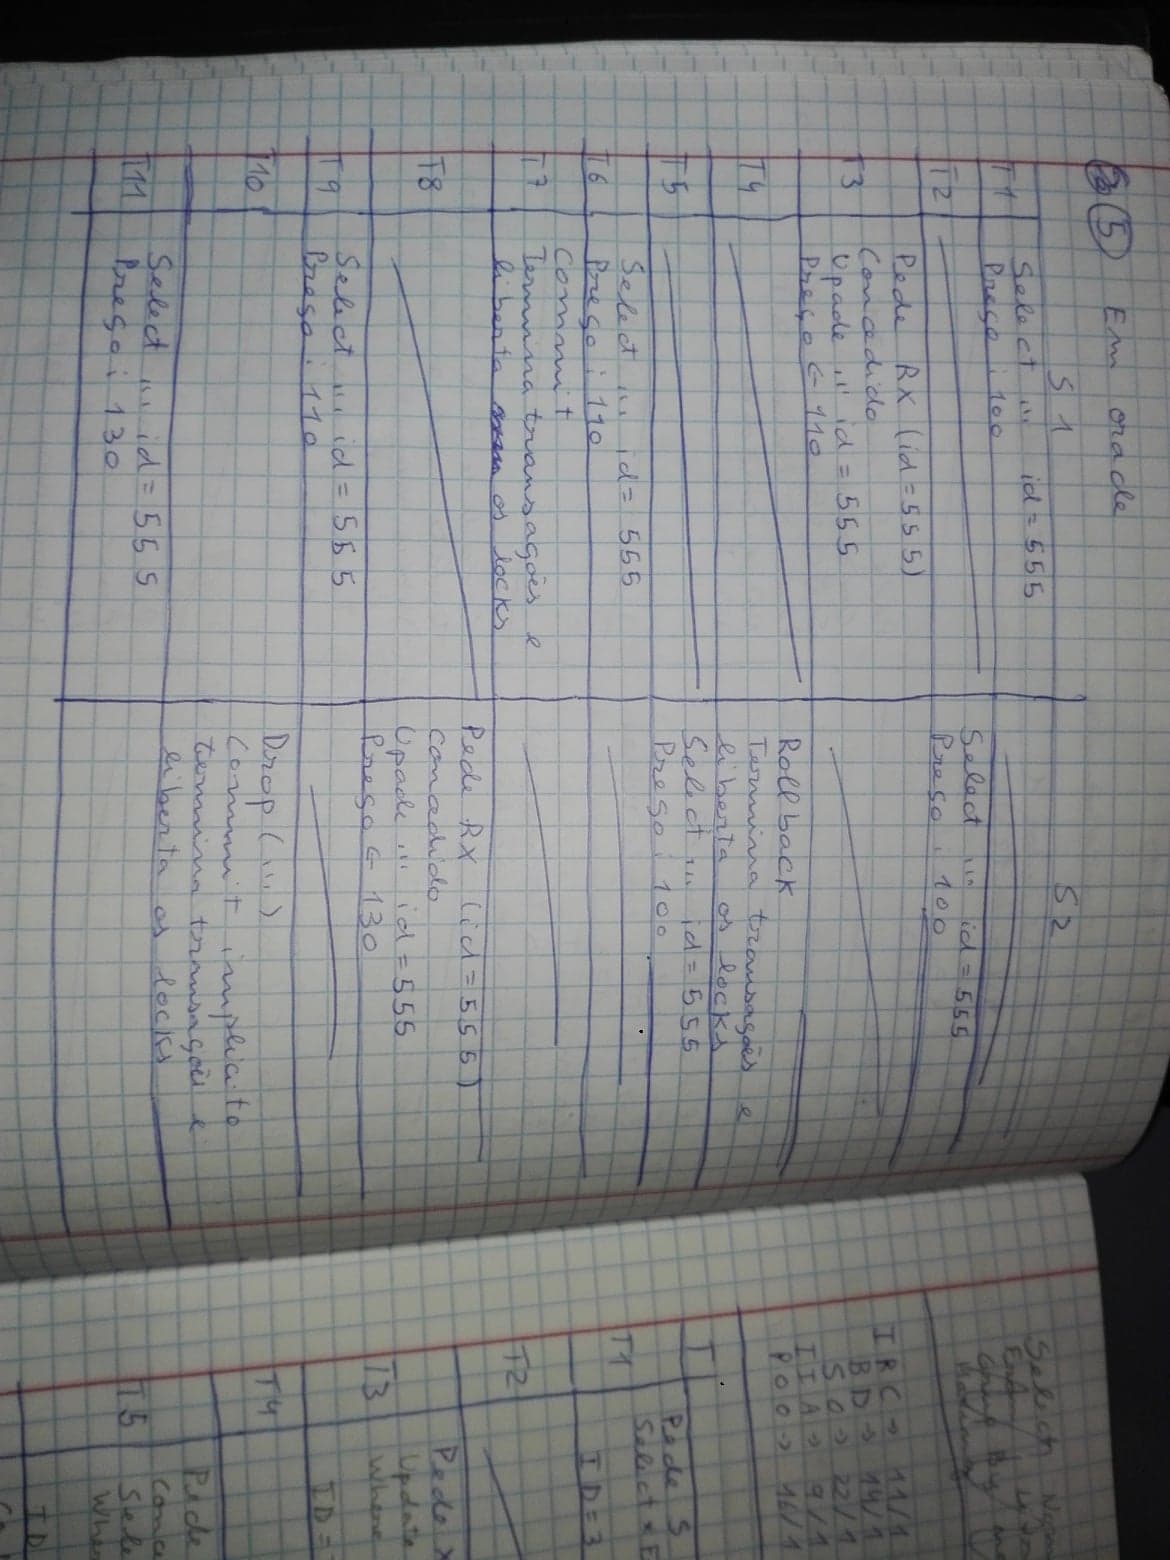 5 Em oracle
S1 S2
T1 Select ... id = 555
Preço : 100
T2 Select ... id = 555
Preço : 100
T3 Pede RX (id = 555)
Concedido
Upade ... id = 555
Preço ← 110
T4 Rollback
Termina transações e
liberta os locks
T5 Select ... id = 555
Preço : 100
T6 Select ... id = 555
Preço : 110
T7 Commit
Termina transações e
liberta os locks
T8 Pede RX (id = 555)
Concedido
Upade ... id = 555
Preço ← 130
T9 Select ... id = 555
Preço : 110
T10 Drop (...)
Commit implicito
termina transações e
liberta os locks
T11 Select ... id = 555
Preço : 130
Select
IRC → 11/1
BD → 14/1
SO → 22/1
IIA → 9/1
POO → 16/1
T
T1 Pede S
Select *
ID = 3
T2
T3 Pede X
Update
Where
ID =
T4
T5 Pede
Conce
Sele
Whe
ID